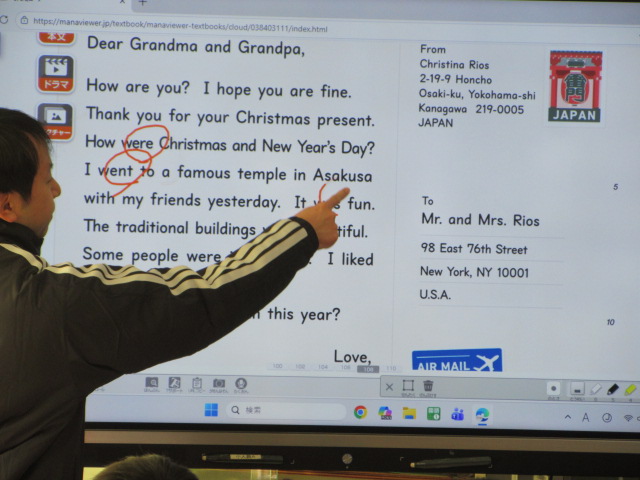 https://manaviewer.jp/textbook/manaviewer-textbooks/cloud/038403111/index.html
本文
ドラマ
Dear Grandma and Grandpa,
How are you? I hope you are fine.
Thank you for your Christmas present.
How were Christmas and New Year's Day?
I went to a famous temple in Asakusa
with my friends yesterday. It fun.
The traditional buildings
Some people were I liked
this year?
Love,
From
Christina Rios
2-19-9 Honcho
Osaki-ku, Yokohama-shi
Kanagawa 219-0005
JAPAN
JAPAN
5
To
Mr. and Mrs. Rios
98 East 76th Street
New York, NY 10001
U.S.A.
10
AIR MAIL
100 102 104 106 108 110
検索
A